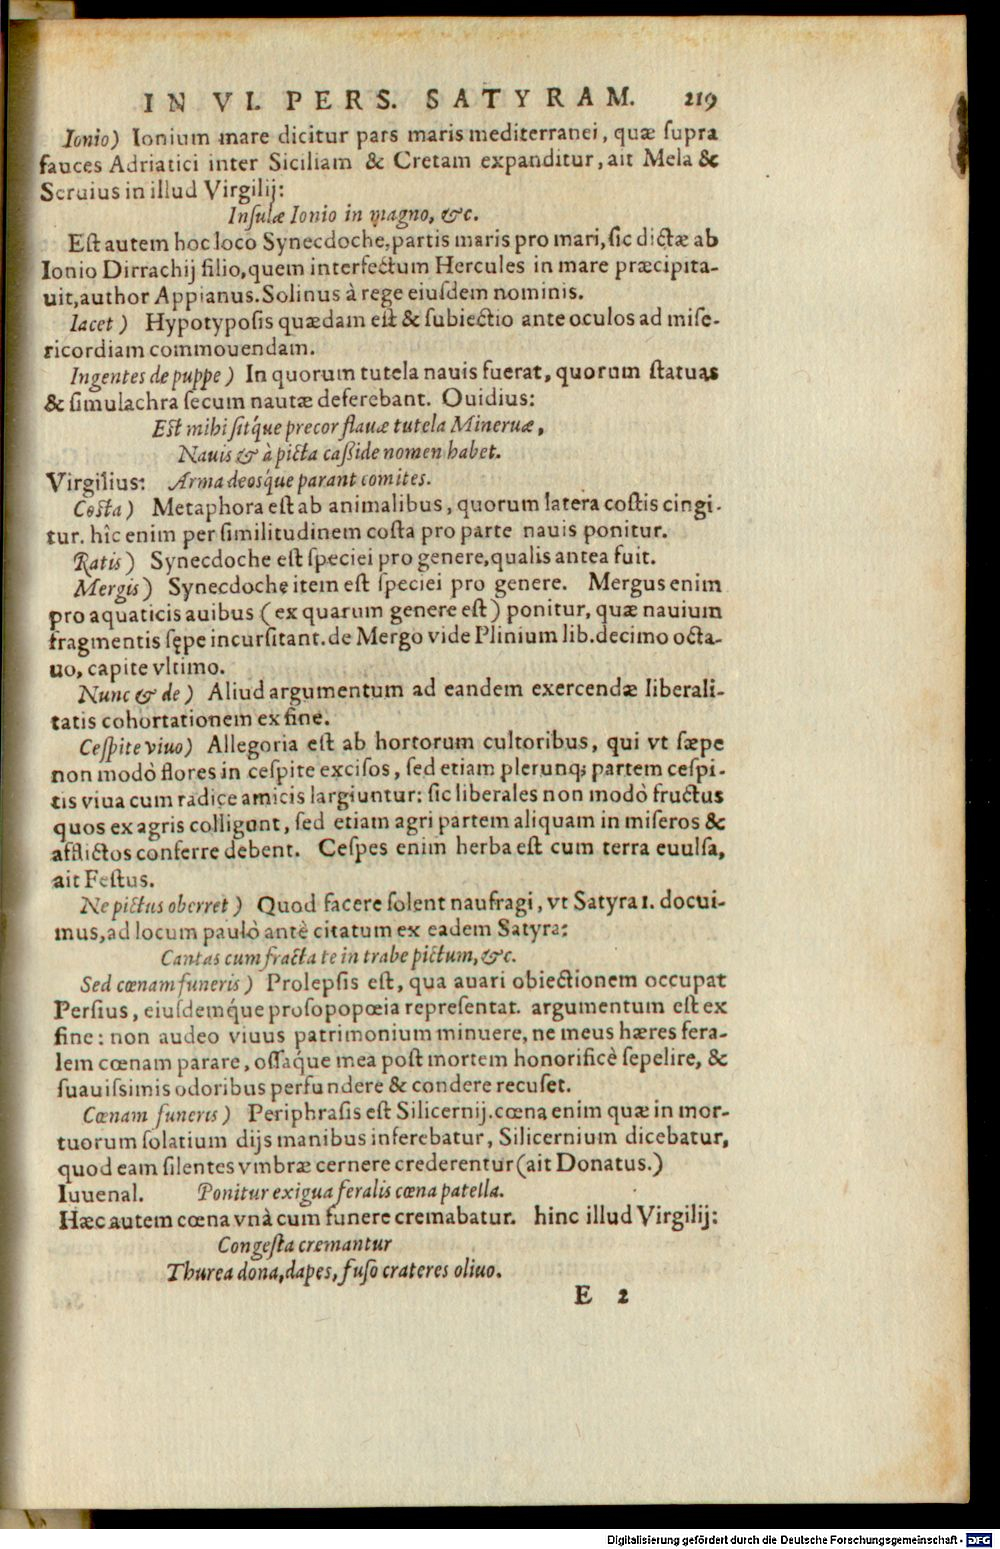 IN VI. PERS. SATYRAM. 219
Ionio) Ionium mare dicitur pars maris mediterranei, quæ supra
fauces Adriatici inter Siciliam & Cretam expanditur, ait Mela &
Seruius in illud Virgilij:
Insulæ Ionio in magno, &c.
Est autem hoc loco Synecdoche, partis maris pro mari, sic dictæ ab
Ionio Dirrachij filio, quem interfectum Hercules in mare præcipita-
uit, author Appianus. Solinus à rege eiusdem nominis.
Iacet) Hypotyposis quædam est & subiectio ante oculos ad mise-
ricordiam commouendam.
Ingentes de puppe) In quorum tutela nauis fuerat, quorum statuas
& simulachra secum nautæ deferebant. Ouidius:
Est mihi sitq́ue precor flauæ tutela Mineruæ,
Nauis & à picta casside nomen habet.
Virgilius: Arma deosq́ue parant comites.
Costa) Metaphora est ab animalibus, quorum latera costis cingi-
tur. hîc enim per similitudinem costa pro parte nauis ponitur.
Ratis) Synecdoche est speciei pro genere, qualis antea fuit.
Mergis) Synecdoche item est speciei pro genere. Mergus enim
pro aquaticis auibus (ex quarum genere est) ponitur, quæ nauium
fragmentis sępe incursitant. de Mergo vide Plinium lib. decimo octa-
uo, capite vltimo.
Nunc & de) Aliud argumentum ad eandem exercendæ liberali-
tatis cohortationem ex fine.
Cespite viuo) Allegoria est ab hortorum cultoribus, qui vt sæpe
non modò flores in cespite excisos, sed etiam plerunq; partem cespi-
tis viua cum radice amicis largiuntur: sic liberales non modò fructus
quos ex agris colligunt, sed etiam agri partem aliquam in miseros &
afflictos conferre debent. Cespes enim herba est cum terra euulsa,
ait Festus.
Ne pictus oberret) Quod facere solent naufragi, vt Satyra 1. docui-
mus, ad locum paulò antè citatum ex eadem Satyra:
Cantas cum fracta te in trabe pictum, &c.
Sed cœnam funeris) Prolepsis est, qua auari obiectionem occupat
Persius, eiusdemq́ue prosopopœia representat. argumentum est ex
fine: non audeo viuus patrimonium minuere, ne meus hæres fera-
lem cœnam parare, ossaq́ue mea post mortem honorificè sepelire, &
suauissimis odoribus perfundere & condere recuset.
Cœnam funeris) Periphrasis est Silicernij. cœna enim quæ in mor-
tuorum solatium dijs manibus inferebatur, Silicernium dicebatur,
quod eam silentes vmbræ cernere crederentur (ait Donatus.)
Iuuenal. Ponitur exigua feralis cœna patella.
Hæc autem cœna vnà cum funere cremabatur. hinc illud Virgilij:
Congesta cremantur
Thurea dona, dapes, fuso crateres oliuo.
E 2
Digitalisierung gefördert durch die Deutsche Forschungsgemeinschaft - DFG